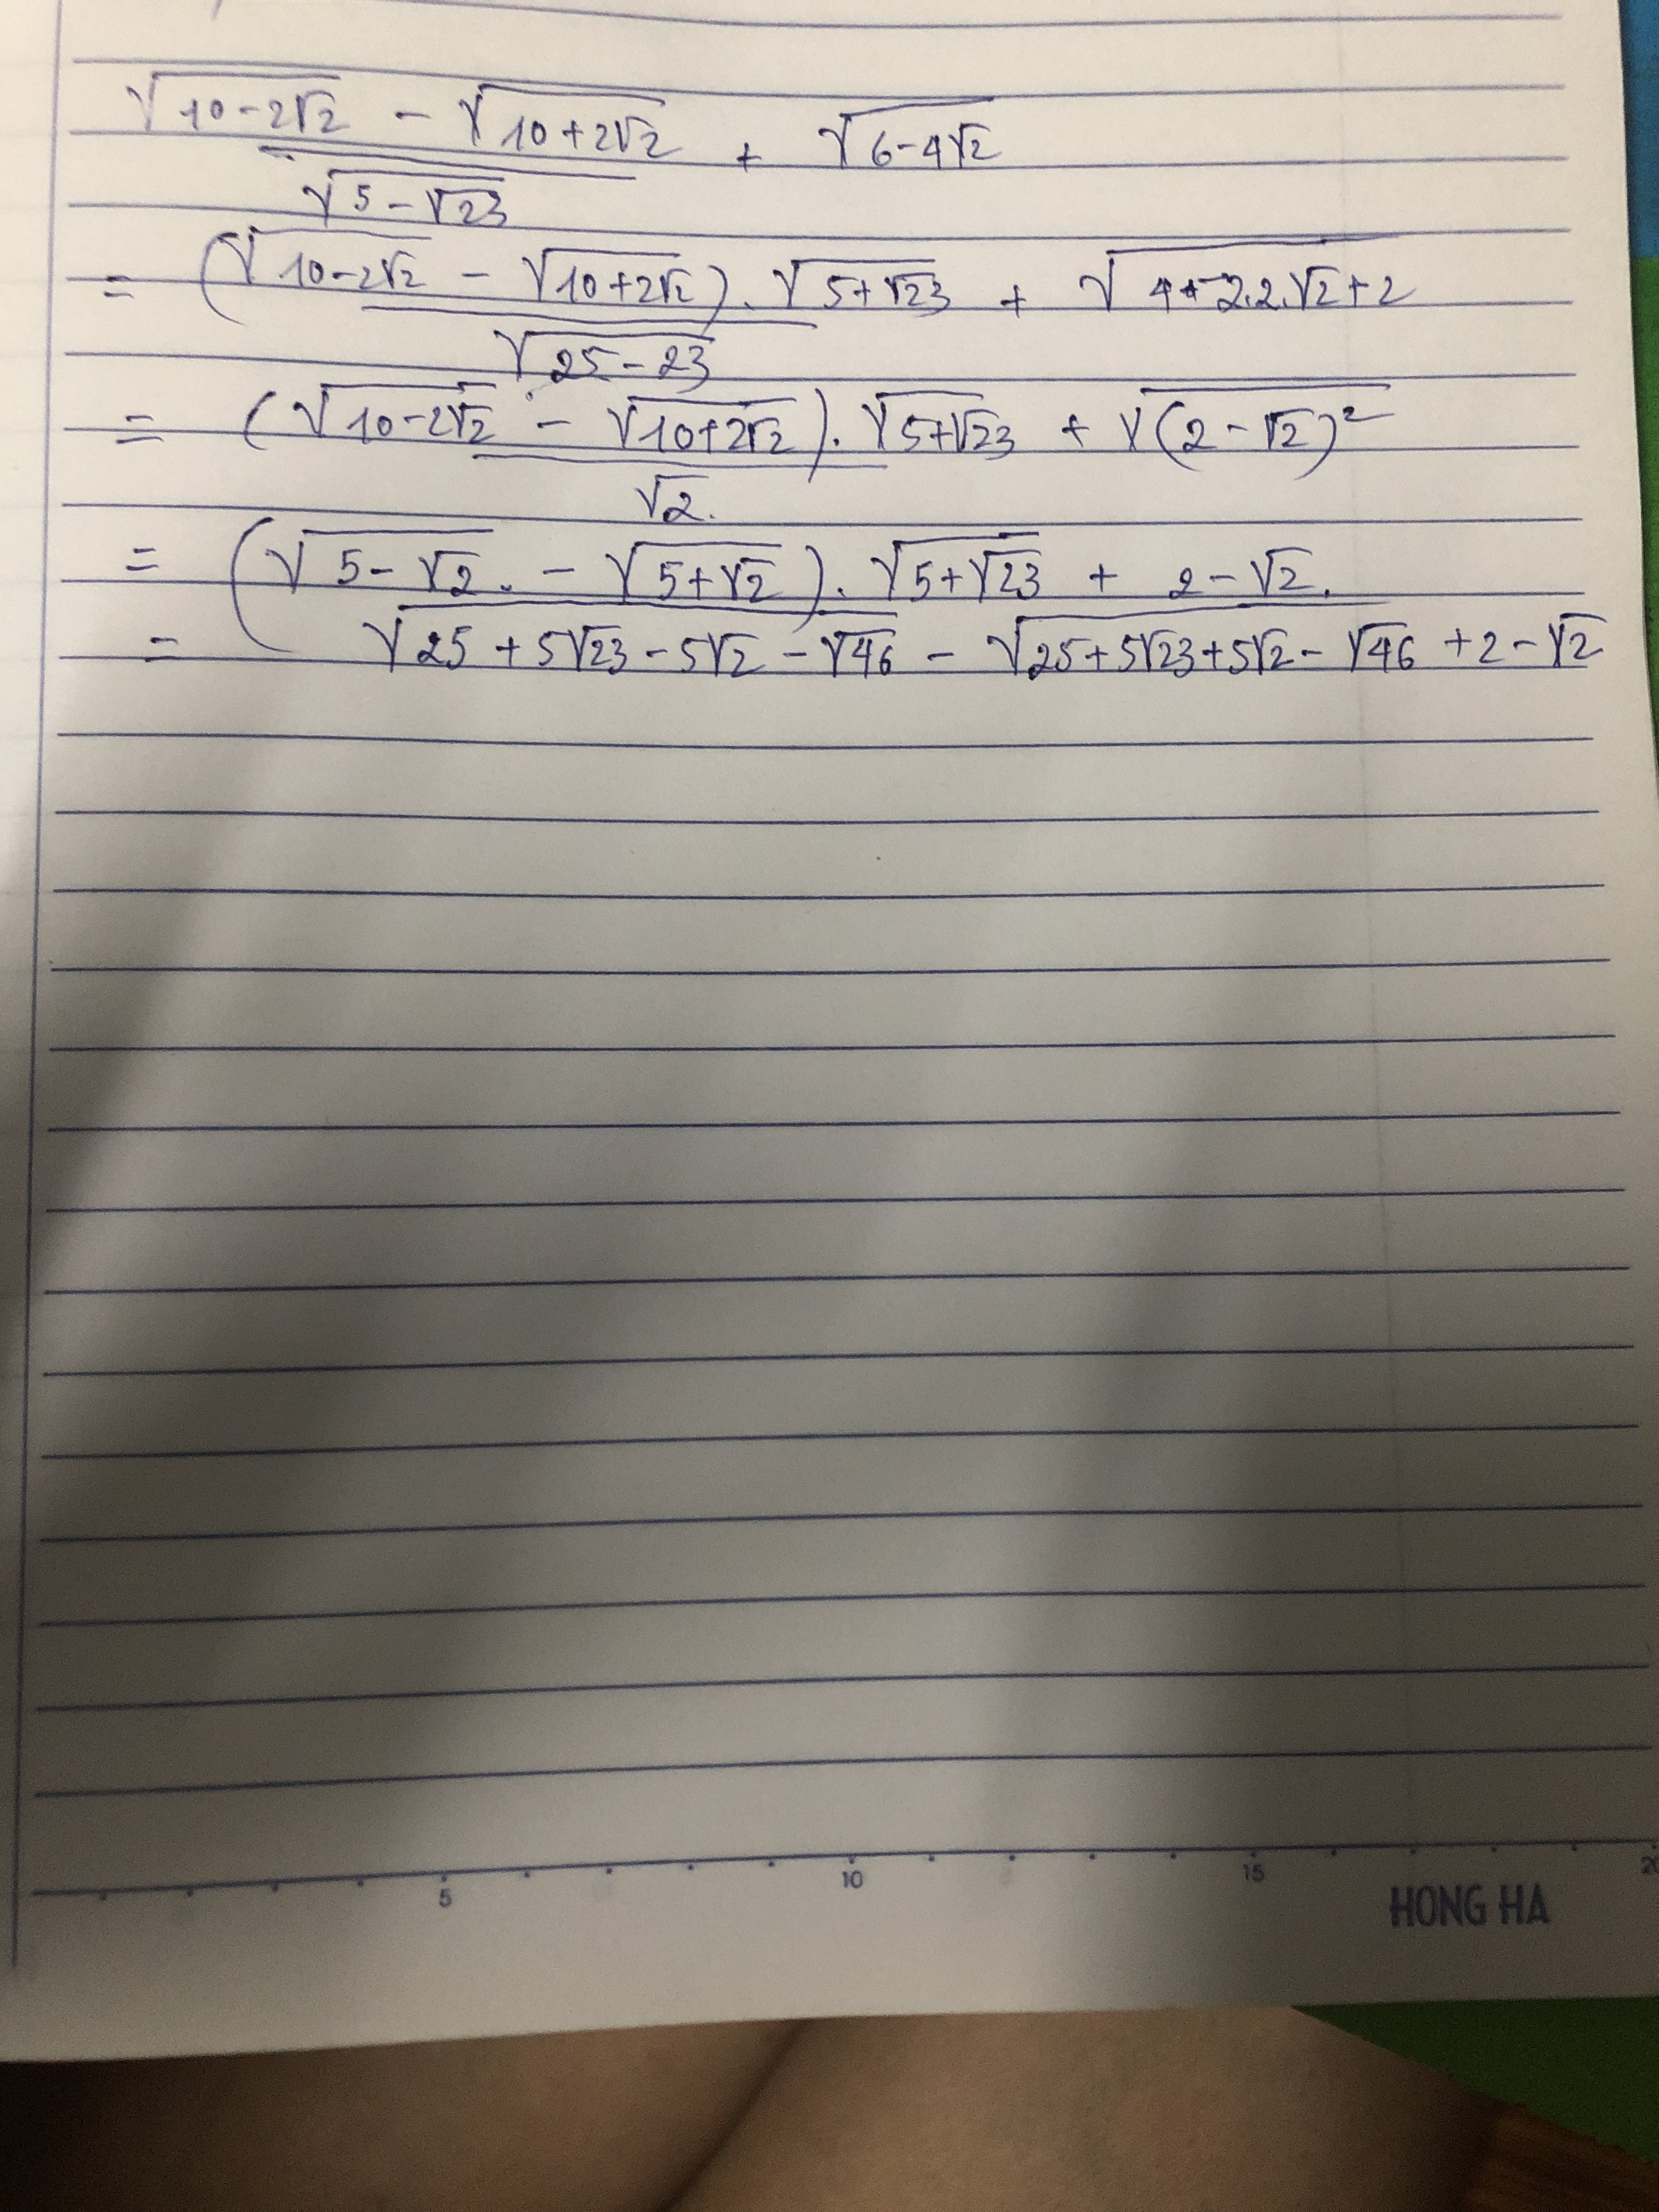 √(10-2√2) - √(10+2√2) + √(6-4√2)
√(5-√23)
= (√(10-2√2) - √(10+2√2)) . √(5+√23) + √(4+-2.2.√2+2)
√(25-23)
= (√(10-2√2) - √(10+2√2)) . √(5+√23) + √((2-√2)²)
√2.
= (√(5-√2) . - √(5+√2)) . √(5+√23) + 2-√2.
= √(25+5√23-5√2-√46) - √(25+5√23+5√2-√46) +2-√2
5 10 15
HONG HA